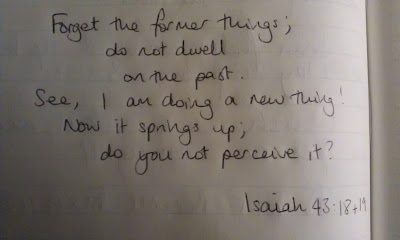 Forget the former things;
do not dwell
on the past.
See, I am doing a new thing!
Now it springs up;
do you not perceive it?
Isaiah 43:18+19